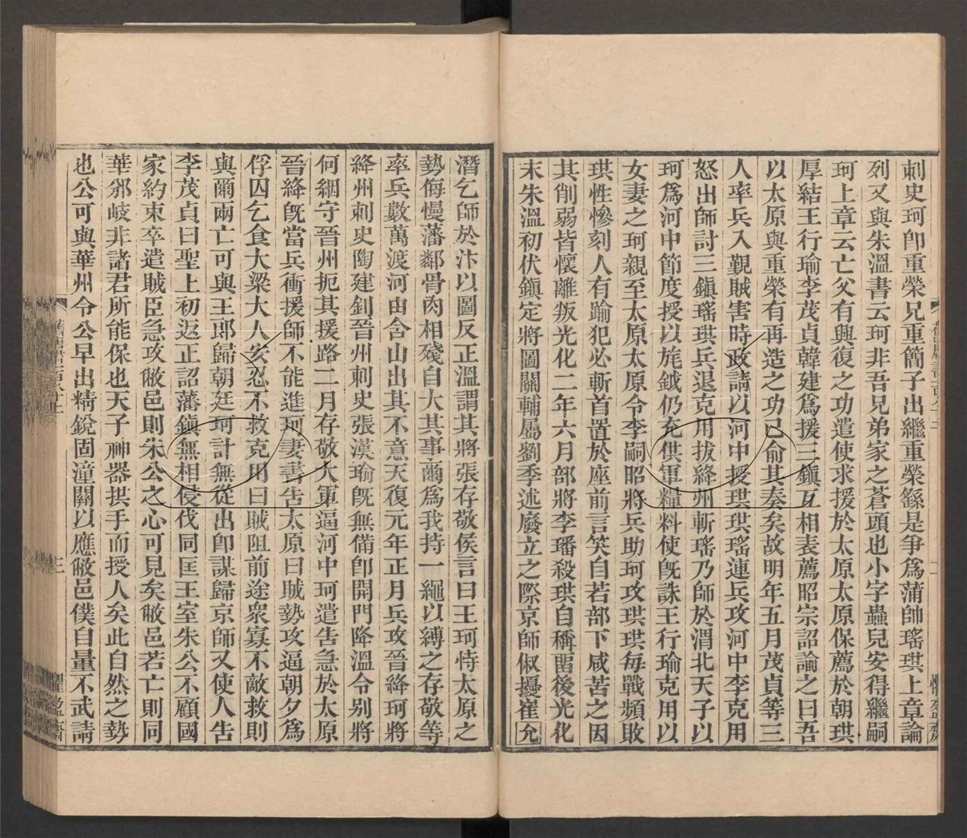 刺史珂卽重榮兄重簡子出繼重榮繇是爭爲蒲帥瑤珙上章論
列又與朱溫書云珂非吾兄弟家之蒼頭也小字蟲兒安得繼嗣
珂上章云亡父有興復之功遣使求援於太原太原保薦於朝珙
厚結王行瑜李茂貞韓建爲援三鎭互相表薦昭宗詔諭之曰吾
以太原與重榮有再造之功已俞其奏矣故明年五月茂貞等三
人率兵入覲賊害時政請以河中授珙珙瑤連兵攻河中李克用
怒出師討三鎭瑤珙兵退克用拔絳州斬瑤乃師於渭北天子以
珂爲河中節度授以旄鉞仍充供軍糧料使旣誅王行瑜克用以
女妻之珂親至太原太原令李嗣昭將兵助珂攻珙珙每戰頻敗
珙性慘刻人有踰犯必斬首置於座前言笑自若部下咸苦之因
其削弱皆懷離叛光化二年六月部將李璠殺珙自稱畱後光化
末朱溫初伏鎭定將圖關輔屬劉季述廢立之際京師俶擾崔允
潛乞師於汴以圖反正溫謂其將張存敬侯言曰王珂恃太原之
勢侮慢藩鄰骨肉相殘自大其事爾爲我持一繩以縛之存敬等
率兵數萬渡河由含山出其不意天復元年正月兵攻晉絳珂將
絳州刺史陶建釗晉州刺史張漢瑜旣無備卽開門降溫令別將
何絪守晉州扼其援路二月存敬大軍逼河中珂遣告急於太原
晉絳旣當兵衝援師不能進珂妻書告太原曰賊勢攻逼朝夕爲
俘囚乞食大梁大人安忍不救克用曰賊阻前途衆寡不敵救則
與爾兩亡可與王郎歸朝廷珂計無從出卽謀歸京師又使人告
李茂貞曰聖上初返正詔藩鎭無相侵伐同匡王室朱公不顧國
家約束卒遣賊臣急攻敝邑則朱公之心可見矣敝邑若亡則同
華邠岐非諸君所能保也天子神器拱手而授人矣此自然之勢
也公可與華州令公早出精銳固潼關以應敝邑僕自量不武請